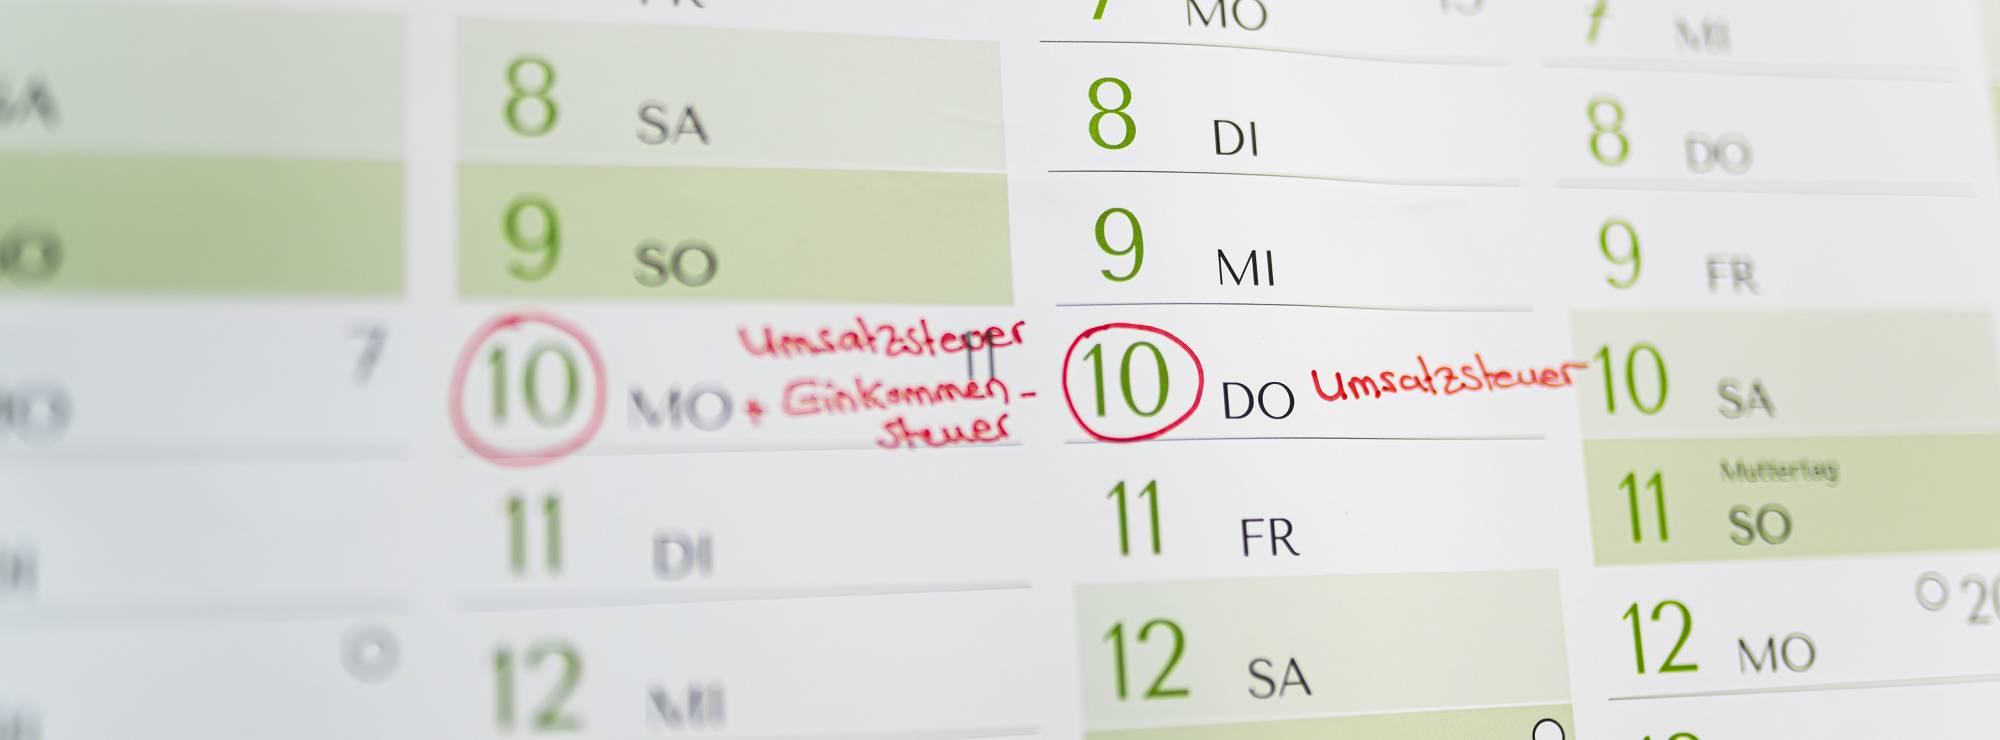 SA
SO
7
8 SA
9 SO
10 MO
Umsatzsteuer
+ Einkommen-
steuer
11 DI
12 MI
7 MO
8 DI
9 MI
10 DO Umsatzsteuer
11 FR
12 SA
7 MI
8 DO
9 FR
10 SA
Muttertag
11 SO
12 MO